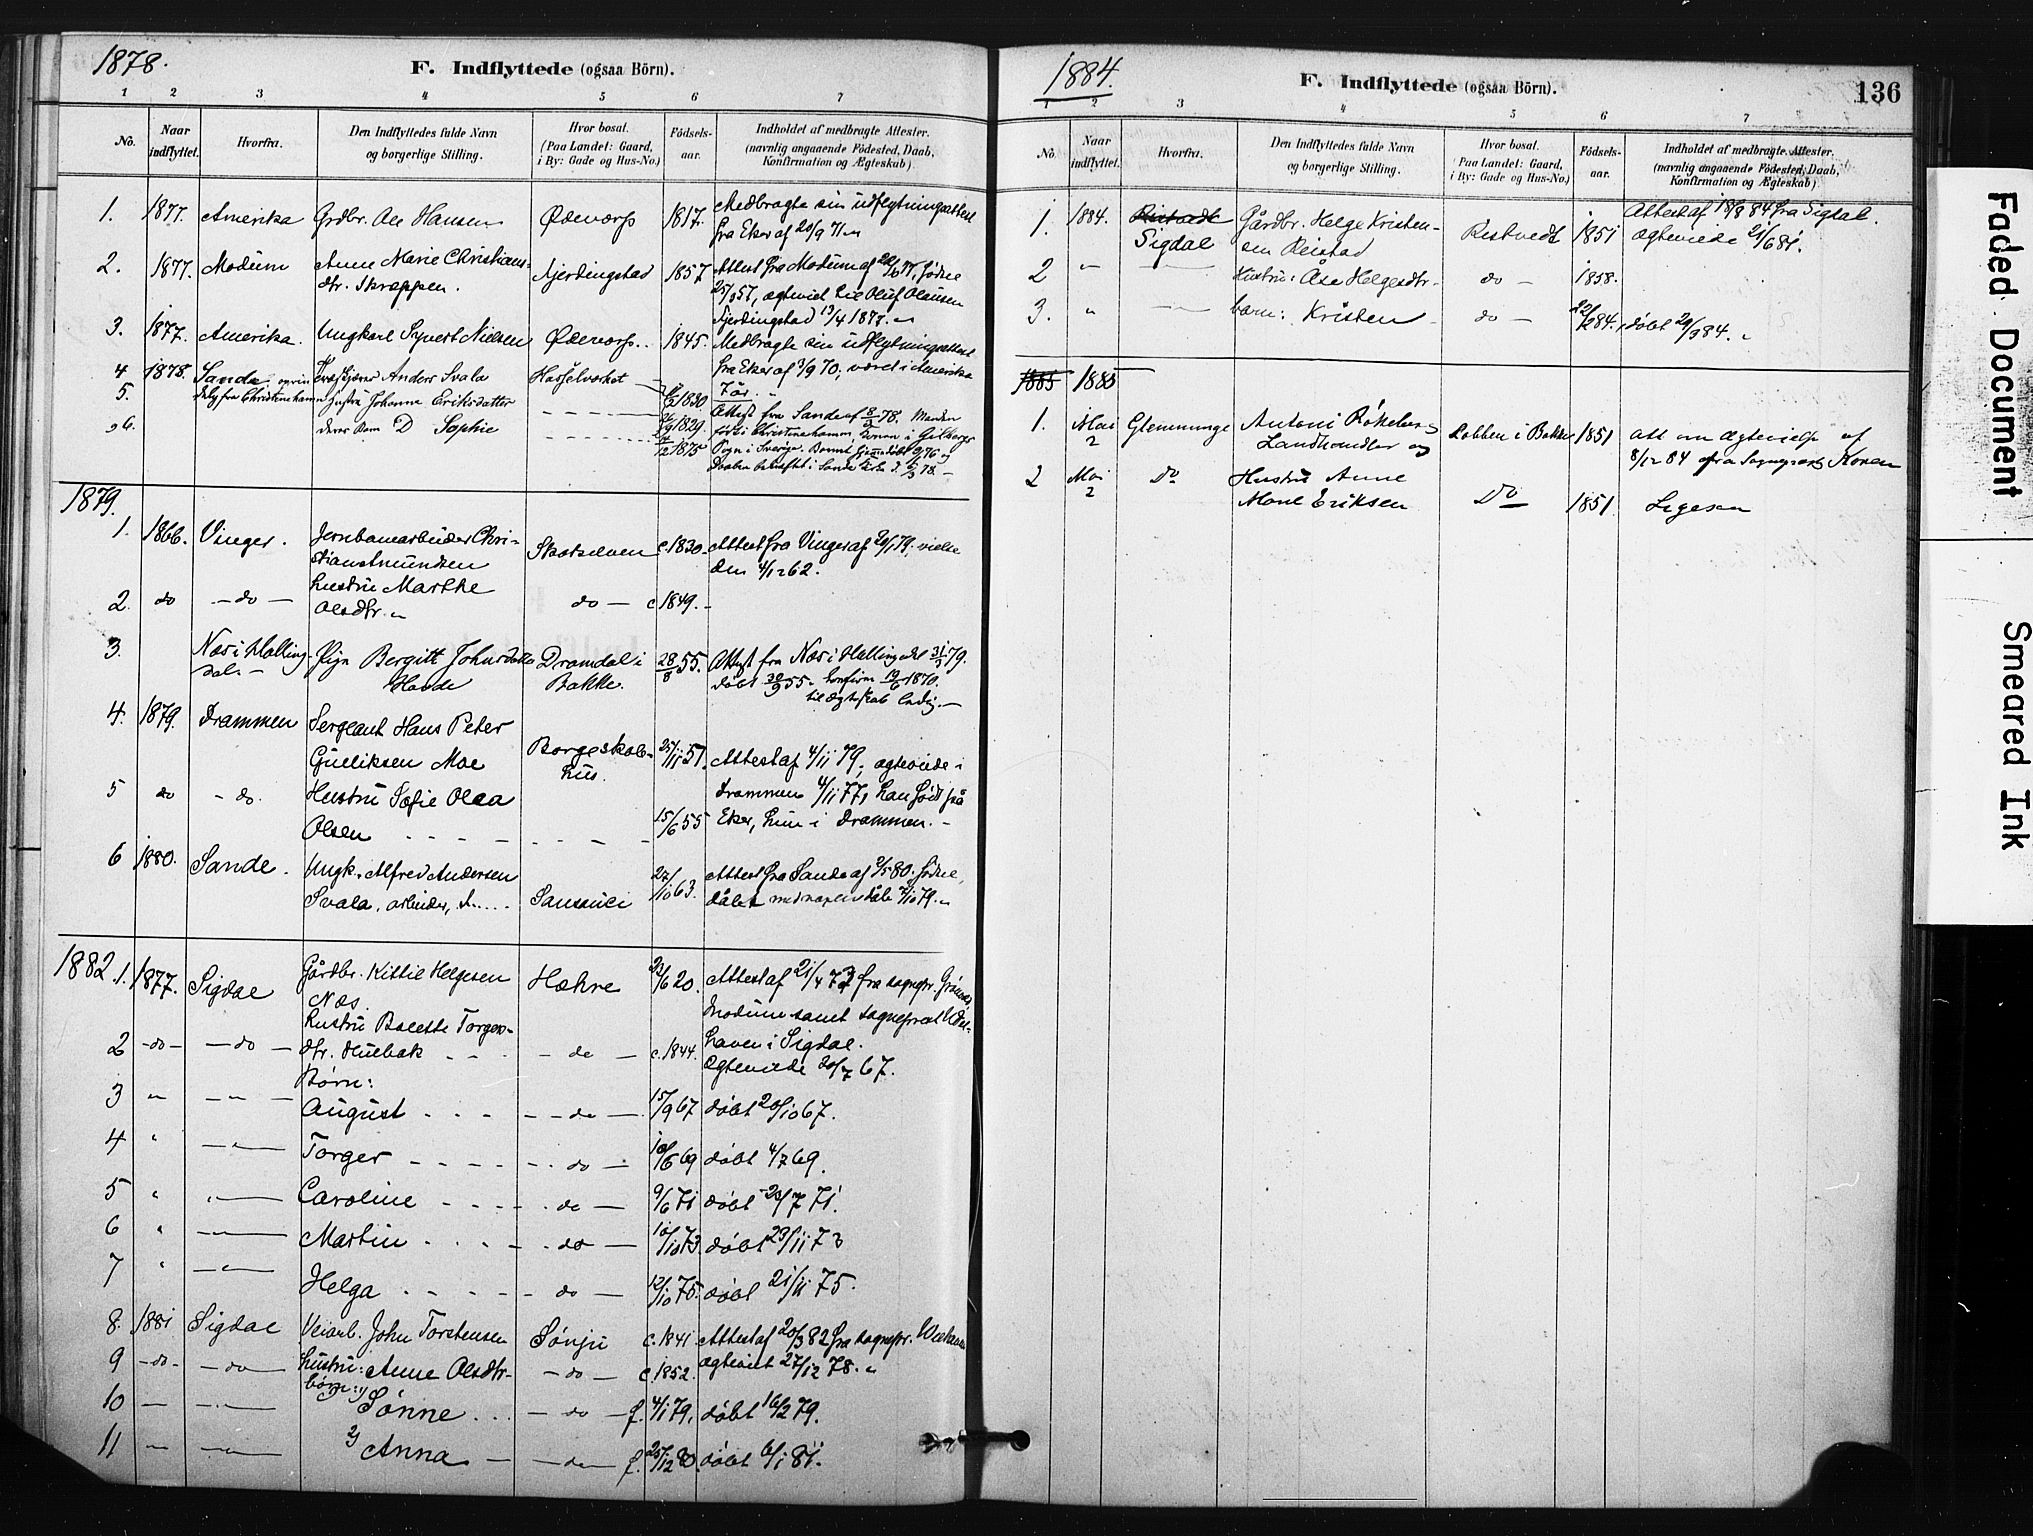 1878.
F. Indflyttede (ogsaa Börn).
1 2 3 4 5 6 7
No. Naar indflyttet. Hvorfra. Den Indflyttedes fulde Navn og borgerlige Stilling. Hvor bosat. (Paa Landet: Gaard, i By: Gade og Hus-No.) Födsels-aar. Indholdet af medbragte Attester. (navnlig angaaende Födested, Daab, Konfirmation og Ægteskab)
1. 1877. Amerika Grdbr. Ole Hansen 1817. Medbragte sin udflytningsattest
fra Eker af 20/9 71
2. 1877. Modum Anne Marie Christians- Fjerdingstad 1857 Attest fra Modum af
dtr. Skrappen. ægteviet til Oluf Olausen
Fjerdingstad 13/4 1878.
3. 1877. Amerika. Ungkarl Syvert Nielsen 1845. Medbragte sin udflytningsattest
fra Eker af 3/9 70; været i Amerika
7 år.
4 1878. Sande Anders Svala Hasselverket 1830
5. fra Christinehamn Hustru Johanne Eriksdatter 1829. Attest fra Sande af 8/3 78. Manden
6. deres Barn D Sophie 1875 født i Christinehamn, Konen i
Sogn i Sverige. Barnet
1879.
1. 1866. Vinger. Jernbanearbeider Chri- Skotselven c. 1830. Attest fra Vinger af 20/1 79; viede
stian Amundsen den 4/12 62.
2. do - do - hustru Marthe do - c 1849.
Olsdtr.
3. Næs i Halling- Pige Bergitt Johnsdatter Dramdal i 28/8 55. Attest fra Næs i Hallingdal 31/3 79.
dal. - Havde Bakke. døbt 30/9 55. Konfirm 19/6 1870.
til Ægteskab ledig. -
4. 1879. Drammen Sergeant Hans Peter
Gulliksen Moe Borgeskole- 25/11 57. Attest af 4/11 79, ægteviede i
hus.
5 do - do. Hustru Sofie Olea Drammen 4/11 77, han født på
Olsen 15/6 55 Eker, hun i Drammen. -
6 1880. Sande. Ungk. Alfred Andersen 27/10 63. Attest fra Sande af 2/5 80. fødsel,
Svala. arbeider, Sansouci dåb
1882.
1. 1877. Sigdal Gårdbr. Kittil Helgesen Hæhre 22/6 20. Attest af 21/4 77 fra sognepr.
Næs.
2 - do - - do - hustru Bolette Torgers- - do - c. 1844. Modum samt sogneprest
dtr. Hulbak haven i Sigdal.
Børn: Ægteviede 20/7 67.
3 August - do - 15/9 67 døbt 20/10 67.
4 Torger - do - 10/6 69 døbt 4/7 69.
5 Caroline - do - 9/6 71 døbt 23/7 71.
6 Martin - do - 10/10 73. døbt 23/11 73
7 Helga - do - 12/10 75. døbt 21/11 75.
8. 1881 Sigdal Veiarb. John Torstensen Sønju c. 1841 Attest af 20/3 82 fra sognepr.
9 - do - - do - hustru: Anne Olsdtr. - do - c. 1852. ægteviet 27/12 78.
børn:
10 1) Sønne - do - f. 4/1 79. døbt 16/2 79.
11 2) Anna - do - f. 25/12 80. døbt 6/1 81.
1884.
F. Indflyttede (ogsaa Börn).
136
1 2 3 4 5 6 7
No. Naar indflyttet. Hvorfra. Den Indflyttedes fulde Navn og borgerlige Stilling. Hvor bosat. (Paa Landet: Gaard, i By: Gade og Hus-No.) Födsels-aar. Indholdet af medbragte Attester. (navnlig angaaende Födested, Daab, Konfirmation og Ægteskab)
1. 1884. Ristvedt Gårdbr. Helge Kristen- Ristvedt 1851 Attest af 18/3 84 fra Sigdal.
Sigdal sen Reistad ægteviede 21/6 81.
2 Hustru: Åse Helgesdtr. do - 1858.
3. barn: Kristen do - 22/2 84. døbt 29/3 84.
1885 1885
1. Mai 2 Glemminge Antoni Lobben i Bakke 1851 att om Ægtevielse af
Landhandler og 8/12 84 fra Sogneprest Koren
2 Mai 2 Do Hustru Anne Do 1851 Ligesaa
Marie Eriksen
Faded Document
Smeared Ink